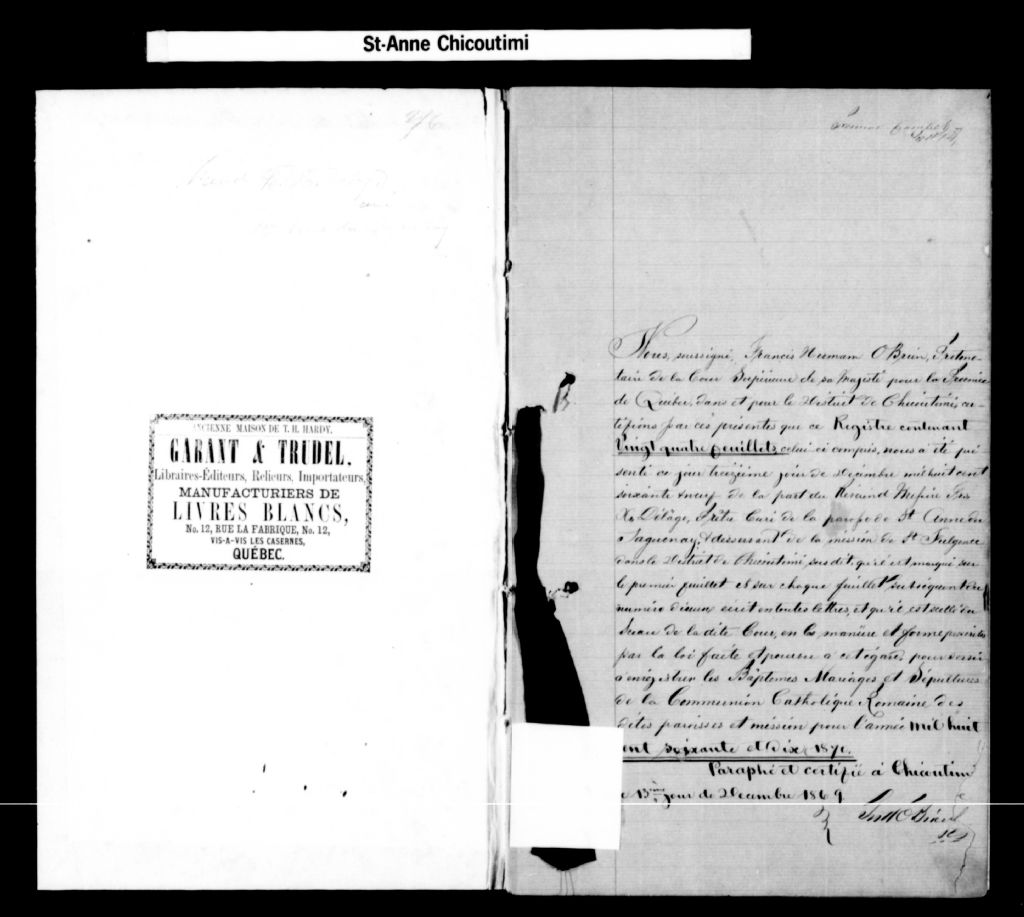 St-Anne Chicoutimi
ANCIENNE MAISON DE T. H. HARDY.
GARANT & TRUDEL,
Libraires-Éditeurs, Relieurs, Importateurs,
MANUFACTURIERS DE
LIVRES BLANCS,
No. 12, RUE LA FABRIQUE, No. 12,
VIS-A-VIS LES CASERNES,
QUÉBEC.
Premier
Nous, soussigné, Francis Hermann O'Brien, Protono-
taire de la Cour Supérieure de sa Majesté pour la Province
de Québec, dans et pour le District de Chicoutimi, cer-
tifions par ces présentes que ce Registre contenant
Vingt quatre feuillets, celui ci compris, nous a été pré
senté ce jour treizième jour de Décembre mil huit cent
soixante & neuf de la part du Révérend Messire
Delâge, Prêtre Curé de la paroisse de St. Anne du
Saguenay, & desservant de la mission de St. Fulgence
dans le District de Chicoutimi, sus dit, qu'il est marqué sur
le premier feuillet & sur chaque feuillet subséquent du
numéro d'iceux écrit en toutes lettres, et qu'il est scellé du
Sceau de la dite Cour, en la manière et forme prescrites
par la loi faite et pourvue à cet égard, pour servir
à enregistrer les Baptêmes Mariages et Sépultures
de la Communion Catholique Romaine des
dites paroisses et mission pour l'année mil huit
cent soixante et dix 1870.
Paraphé et certifié à Chicoutimi
ce 13ème jour de Décembre 1869
O'Brien